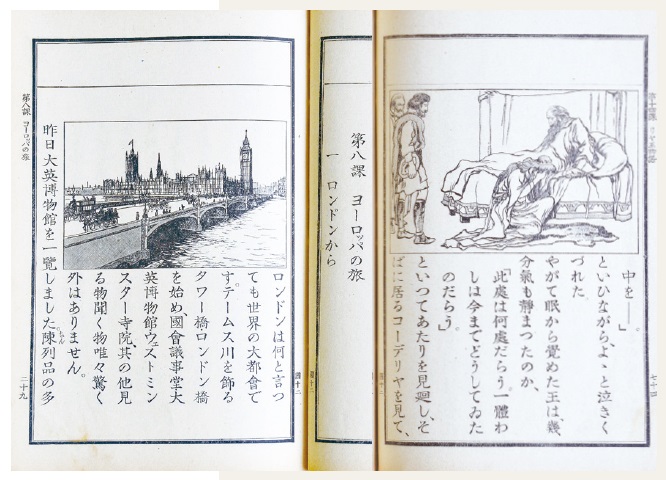 中を――。」
といひながら、よゝと泣きく
づれた
やがて眠から覺めた王は、幾
分氣も靜まつたのか、
「此處は何處だらう。一體わ
しは今までどうしてゐた
のだらう。」
といつてあたりを見廻し、そ
ばに居るコーデリヤを見て、
七十四
第八課 ヨーロッパの旅
一 ロンドンから
ロンドンは何と言つ
ても世界の大都會で
す。テームス川を飾る
タワー橋ロンドン橋
を始め、國會議事堂大
英博物館ウェストミン
スター寺院、其の他見
る物聞く物唯々驚く
外はありません。
昨日大英博物館を一覽しました。陳列品の多
第八課 ヨーロッパの旅